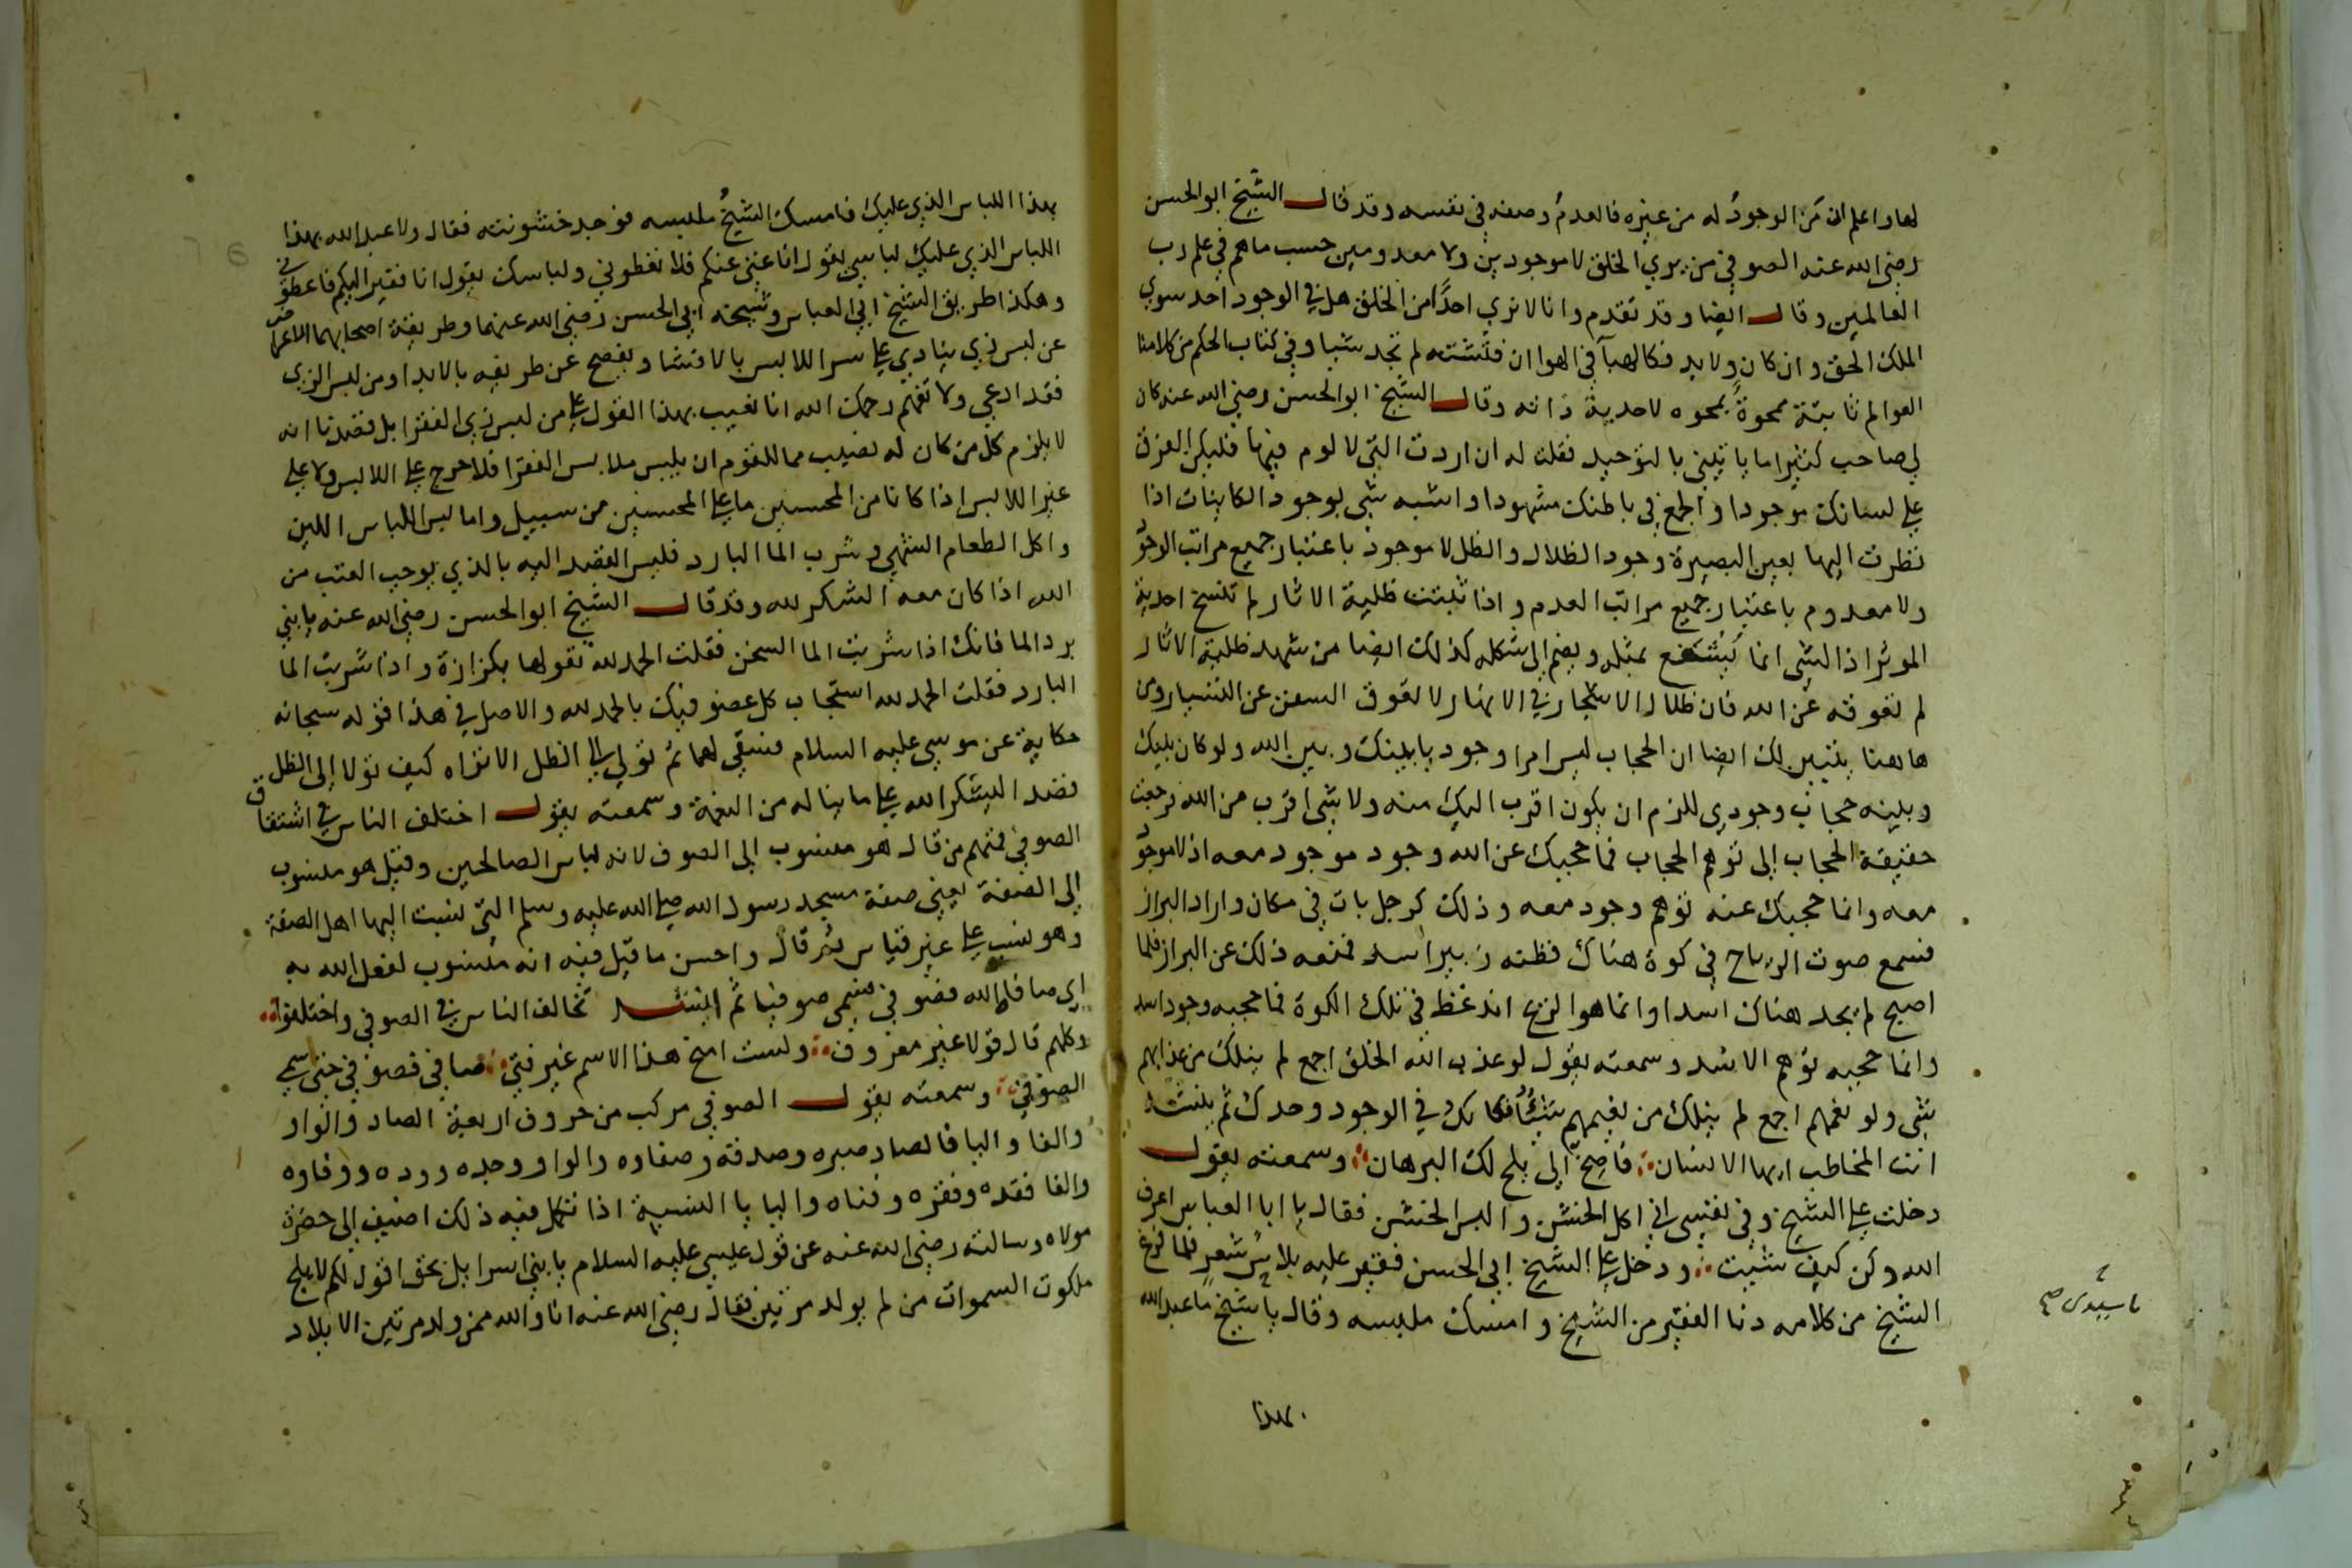 لها واعلم ان من الوجود له من غيره فالعدم وصفه في نفسه وقد قال الشيخ ابو الحسن
رضي الله عنه الصوفي من يري الخلق لا موجودين ولا معدومين حسب ما هم في علم رب
العالمين وقال ايضا وقد تقدم وانا لا نري احدا من الخلق هل في الوجود احد سوي
الملك الحق وان كان ولا بد فكالهبآ في الهوا ان فتشته لم تجد شيا وفي كتاب الحكم من كلامنا
العوالم ثابتة ممحوة بمحوه لاحدية ذاته وقال الشيخ ابو الحسن رضي الله عنه كان
لي صاحب كثيرا ما ياتيني بالتوحيد فقلت له ان اردت التي لا لوم فيها فليكن الفرق
علي لسانك موجودا والجمع في باطنك مشهودا واشبه شي بوجود الكاينات اذا
نظرت اليها بعين البصيرة وجود الظلال والظل لا موجود باعتبار جميع مراتب الوجود
ولا معدوم باعتبار جميع مراتب العدم واذا ثبتت ظلية الاثار لم تنسخ احدية
الموثر اذ الشي انما يشفع بمثله ويضم الي شكله كذلك ايضا من شهد ظلية الاثار
لم تعوقه عن الله فان ظلال الاشجار في الانهار لا تعوق السفن عن التسيار ومن
هاهنا يتبين لك ايضا ان الحجاب ليس امرا وجوديا بينك وبين الله ولو كان بينك
وبينه حجاب وجودي للزم ان يكون اقرب اليك منه ولا شي اقرب من الله فرجعت
حقيقة الحجاب الي توهم الحجاب فما حجبك عن الله وجود موجود معه اذ لا موجود
معه وانما حجبك عنه توهم وجود معه وذلك كرجل بات في مكان واراد البراز
فسمع صوت الرياح في كوة هناك فظنه زبير اسد فمنعه ذلك عن البراز فلما
اصبح لم يجد هناك اسدا وانما هو الريح انضغط في تلك الكوة فما حجبه وجود اسد
وانما حجبه توهم الاسد وسمعته يقول لو عذب الله الخلق اجمع لم ينلك من عذابهم
شي ولو نعمهم اجمع لم ينلك من نعيمهم شي فكانك في الوجود وحدك ثم ينشد
انت المخاطب ايها الانسان فاصخ الي يلح لك البرهان وسمعته يقول
دخلت علي الشيخ وفي نفسي اني اكل الخشن والبس الخشن فقال يا ابا العباس اعرف
الله وكن كيف شيت ودخل علي الشيخ ابي الحسن فقير عليه بلاس شعر فلما فرغ
الشيخ من كلامه دنا الفقير من الشيخ وامسك ملبسه وقال يا شيخ ما عبد الله
بهذا
يا سيدي صح
بهذا اللباس الذي عليك فامسك الشيخ ملبسه فوجد خشونته فقال ولا عبد الله بهذا
اللباس الذي عليك لباسي يقول انا غني عنكم فلا تعطوني ولباسك يقول انا فقير اليكم فاعطوني
وهكذا طريق الشيخ ابي العباس وشيخه ابي الحسن رضي الله عنهما وطريقة اصحابهما الاعراض
عن لبس زي ينادي علي سر اللابس بالافشا ويفصح عن طريقه بالابدا ومن لبس الزي
فقد ادعي ولا تفهم رحمك الله انا نعيب بهذا القول علي من لبس زي الفقرا بل قصدنا انه
لا يلزم كل من كان له نصيب مما للقوم ان يلبس ملابس الفقرا فلا حرج علي اللابس ولا علي
غير اللابس اذا كانا من المحسنين ما علي المحسنين من سبيل واما لبس اللباس اللين
واكل الطعام الشهي وشرب الما البارد فليس القصد اليه بالذي يوجب العتب من
الله اذا كان معه الشكر لله وقد قال الشيخ ابو الحسن رضي الله عنه يا بني
برد الما فانك اذا شربت الما السخن فقلت الحمد لله تقولها بكزازة واذا شربت الما
البارد فقلت الحمد لله استجاب كل عضو فيك بالحمد لله والاصل في هذا قوله سبحانه
حكاية عن موسي عليه السلام فسقي لهما ثم تولي الي الظل الا تراه كيف تولا الي الظل
قصد اليشكر الله علي ما يناله من النعمة وسمعته يقول اختلف الناس في اشتقاق
الصوفي فمنهم من قال هو منسوب الي الصوف لانه لباس الصالحين وقيل هو منسوب
الي الصفة يعني صفة مسجد رسول الله صلي الله عليه وسلم التي نسبت اليها اهل الصفة
وهو نسب علي غير قياس ثم قال واحسن ما قيل فيه انه منسوب لفعل الله به
اي صافاه الله فصوفي فسمي صوفيا ثم انشد تخالف الناس في الصوفي واختلفوا
وكلهم قال قولا غير معروف ولست امنح هذا الاسم غير فتي صافي فصوفي حتي سمي
الصوفي وسمعته يقول الصوفي مركب من حروف اربعة الصاد والواو
والفا واليا فالصاد صبره وصدقه وصفاوه والواو وجده ووده ووفاوه
والفا فقده وفقره وفناه واليا يا النسبة اذا تكمل فيه ذلك اضيف الي حضرة
مولاه وسالته رضي الله عنه عن قول عيسي عليه السلام يا بني اسرايل بحق اقول لكم لا يلج
ملكوت السموات من لم يولد مرتين فقال رضي الله عنه انا والله ممن ولد مرتين الايلاد